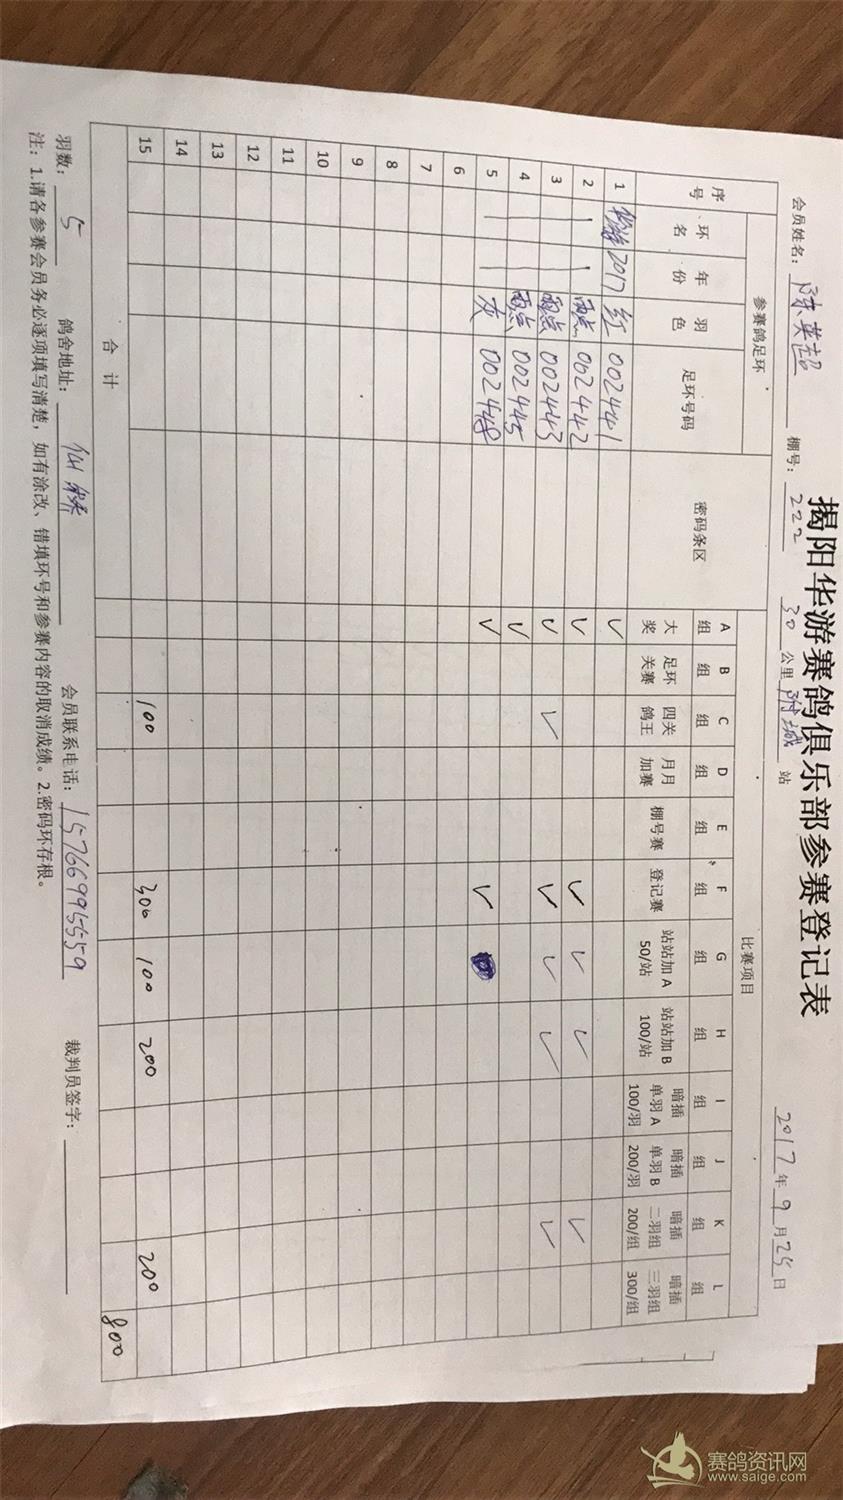 揭阳华游赛鸽俱乐部参赛登记表
会员姓名：陈英超 棚号：222 30公里附城站 2017年9月25日
序号 参赛鸽足环 密码条区 比赛项目
环名 年份 羽色 足环号码 A组 B组 C组 D组 E组 F组 G组 H组 I组 J组 K组 L组
大奖 足环关赛 四关鸽王 月月加赛 棚号赛 登记赛 站站加A 50/站 站站加B 100/站 暗插单羽A 100/羽 暗插单羽B 200/羽 暗插二羽组 200/组 暗插三羽组 300/组
1 2017 红 002441 ✓
2 雨点 062442 ✓ ✓ ✓ ✓ ✓
3 雨点 002443 ✓ ✓ ✓ ✓ ✓ ✓
4 雨点 002445 ✓
5 灰 002448 ✓ ✓
6
7
8
9
10
11
12
13
14
15 100 300 100 200 200
合计 800
羽数：5 鸽舍地址：仙桥 会员联系电话：15766995559 裁判员签字：
注：1.请各参赛会员务必逐项填写清楚，如有涂改、错填环号和参赛内容的取消成绩。2.密码环存根。
赛鸽资讯网
www.saige.com